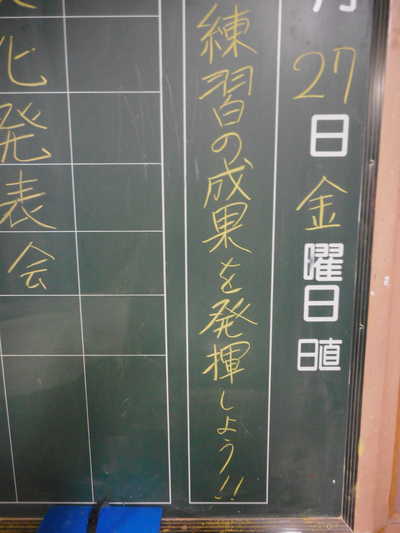 月
27日金曜日
日直
練習の成果を発揮しよう!!
化発表会